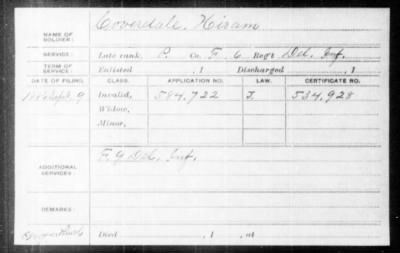 NAME OF SOLDIER: Coverdale, Hiram
SERVICE: Late rank, P. Co. F, 6 Reg't Del. Inf.
TERM OF SERVICE: Enlisted , 1 Discharged , 1
DATE OF FILING. CLASS. APPLICATION NO. LAW. CERTIFICATE NO.
1886 Sept. 9 Invalid, 584,722 J. 534,928
Widow,
Minor,
ADDITIONAL SERVICES: F. 9 Del. Inf.
REMARKS:
Died , 1 , at